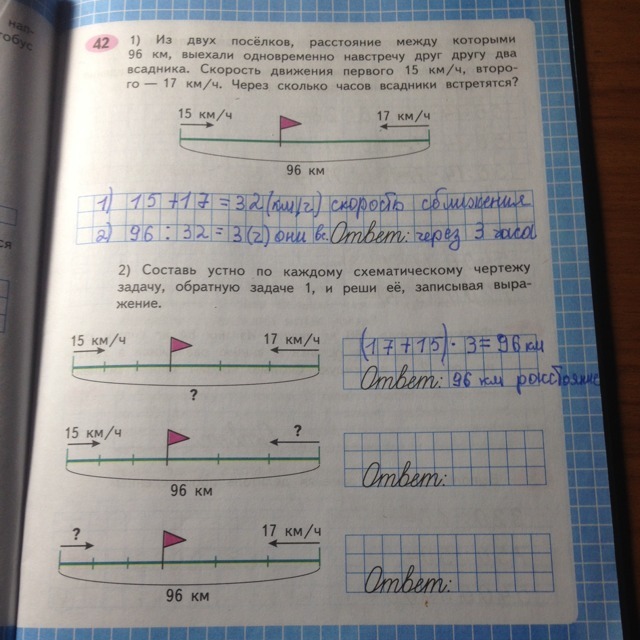 нап-
тобус
ся
42 1) Из двух посёлков, расстояние между которыми
96 км, выехали одновременно навстречу друг другу два
всадника. Скорость движения первого 15 км/ч, второ-
го — 17 км/ч. Через сколько часов всадники встретятся?
15 км/ч 17 км/ч
96 км
1) 15+17=32(км/ч) скорость сближения
2) 96 : 32 = 3(ч) они в. Ответ: через 3 часа
2) Составь устно по каждому схематическому чертежу
задачу, обратную задаче 1, и реши её, записывая выра-
жение.
15 км/ч 17 км/ч
?
(17+15)·3=96км
Ответ: 96 км расстояние
15 км/ч ?
96 км
Ответ:
? 17 км/ч
96 км
Ответ: